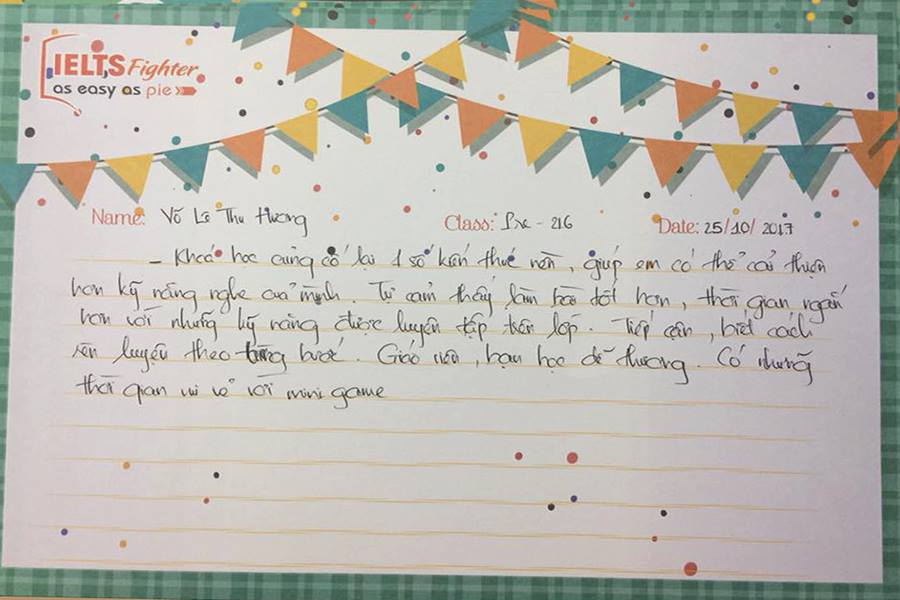 IELTS Fighter
as easy as pie
Name: Võ Lê Thu Hương Class: Pre - 216 Date: 25/10/2017
- Khoá học củng cố lại 1 số kiến thức nền, giúp em có thể cải thiện
hơn kỹ năng nghe của mình. Tự cảm thấy làm bài tốt hơn, thời gian ngắn
hơn với những kỹ năng được luyện tập trên lớp. Tiếp cận, biết cách
rèn luyện theo từng bước. Giáo viên, bạn học dễ thương. Có những
thời gian vui vẻ với mini game